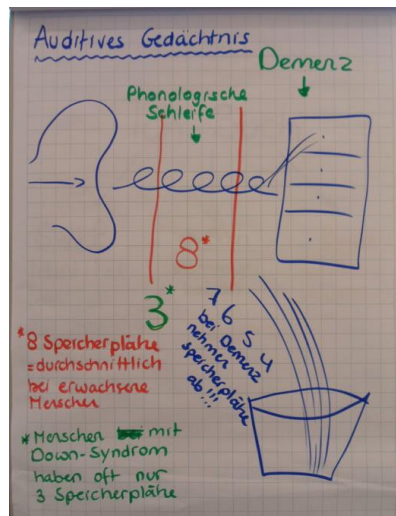 Auditives Gedächtnis
Demenz
Phonologische
Schleife
8*
3*
7 6 5 4
bei Demenz
nehmen
speicherplätze
ab!!!
*8 Speicherplätze
=durchschnittlich
bei erwachsene
Menschen
*Menschen mit
Down-Syndrom
haben oft nur
3 Speicherplätze